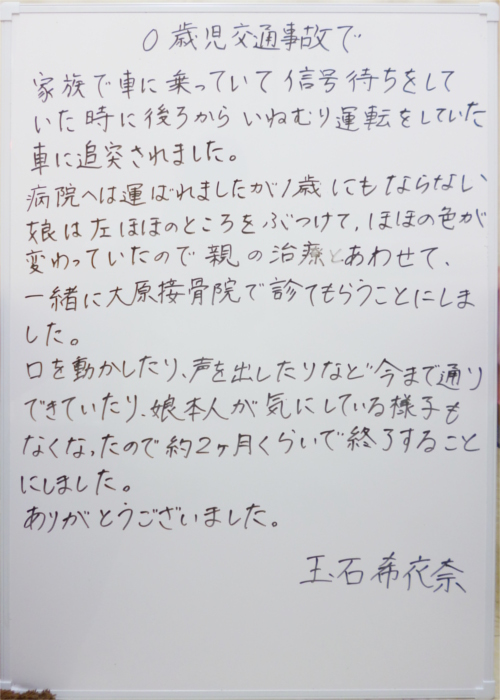 0歳児交通事故で
家族で車に乗っていて信号待ちをして
いた時に後ろからいねむり運転をしていた
車に追突されました。
病院へは運ばれましたが1歳にもならない
娘は左ほほのところをぶつけて、ほほの色が
変わっていたので親の治療とあわせて、
一緒に大原接骨院で診てもらうことにしま
した。
口を動かしたり、声を出したりなど今まで通り
できていたり、娘本人が気にしている様子も
なくなったので約2ヶ月くらいで終了すること
にしました。
ありがとうございました。
玉石希衣奈